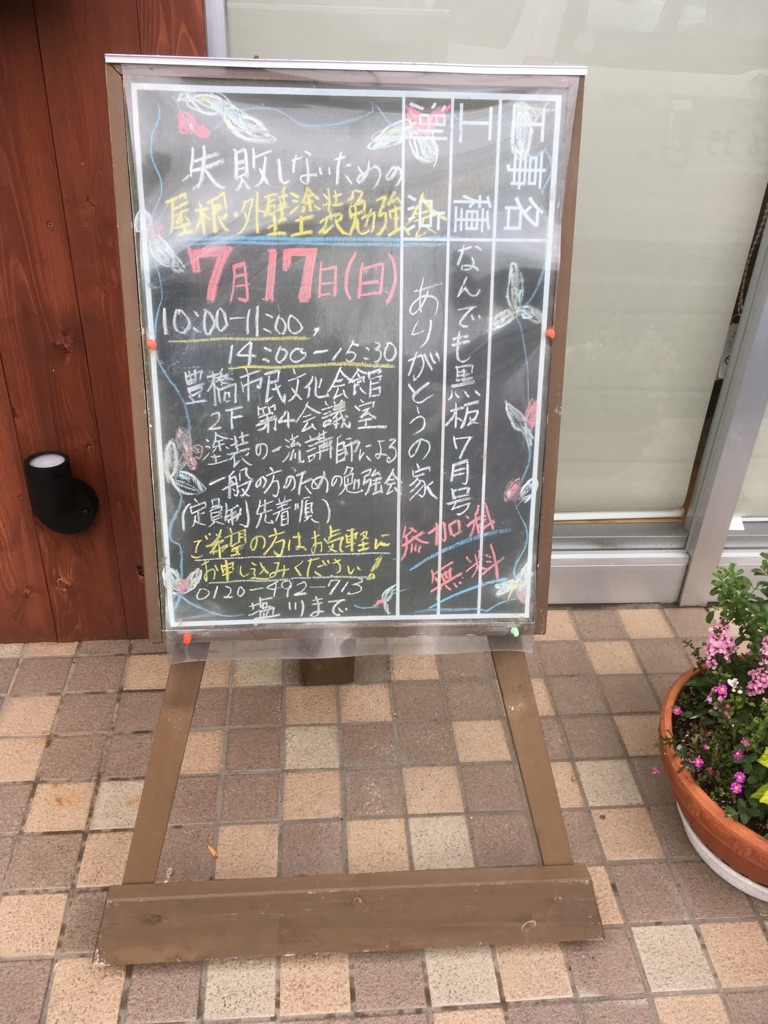 工事名
工種
測点
なんでも黒板7月号
ありがとうの家
参加料
無料
失敗しないための
屋根・外壁塗装勉強会
7月17日(日)
10:00-11:00,
14:00-15:30
豊橋市民文化会館
2F 第4会議室
塗装の一流講師による
一般の方のための勉強会
(定員制 先着順)
ご希望の方はお気軽に
お申し込みください!
0120-492-713
塩川まで